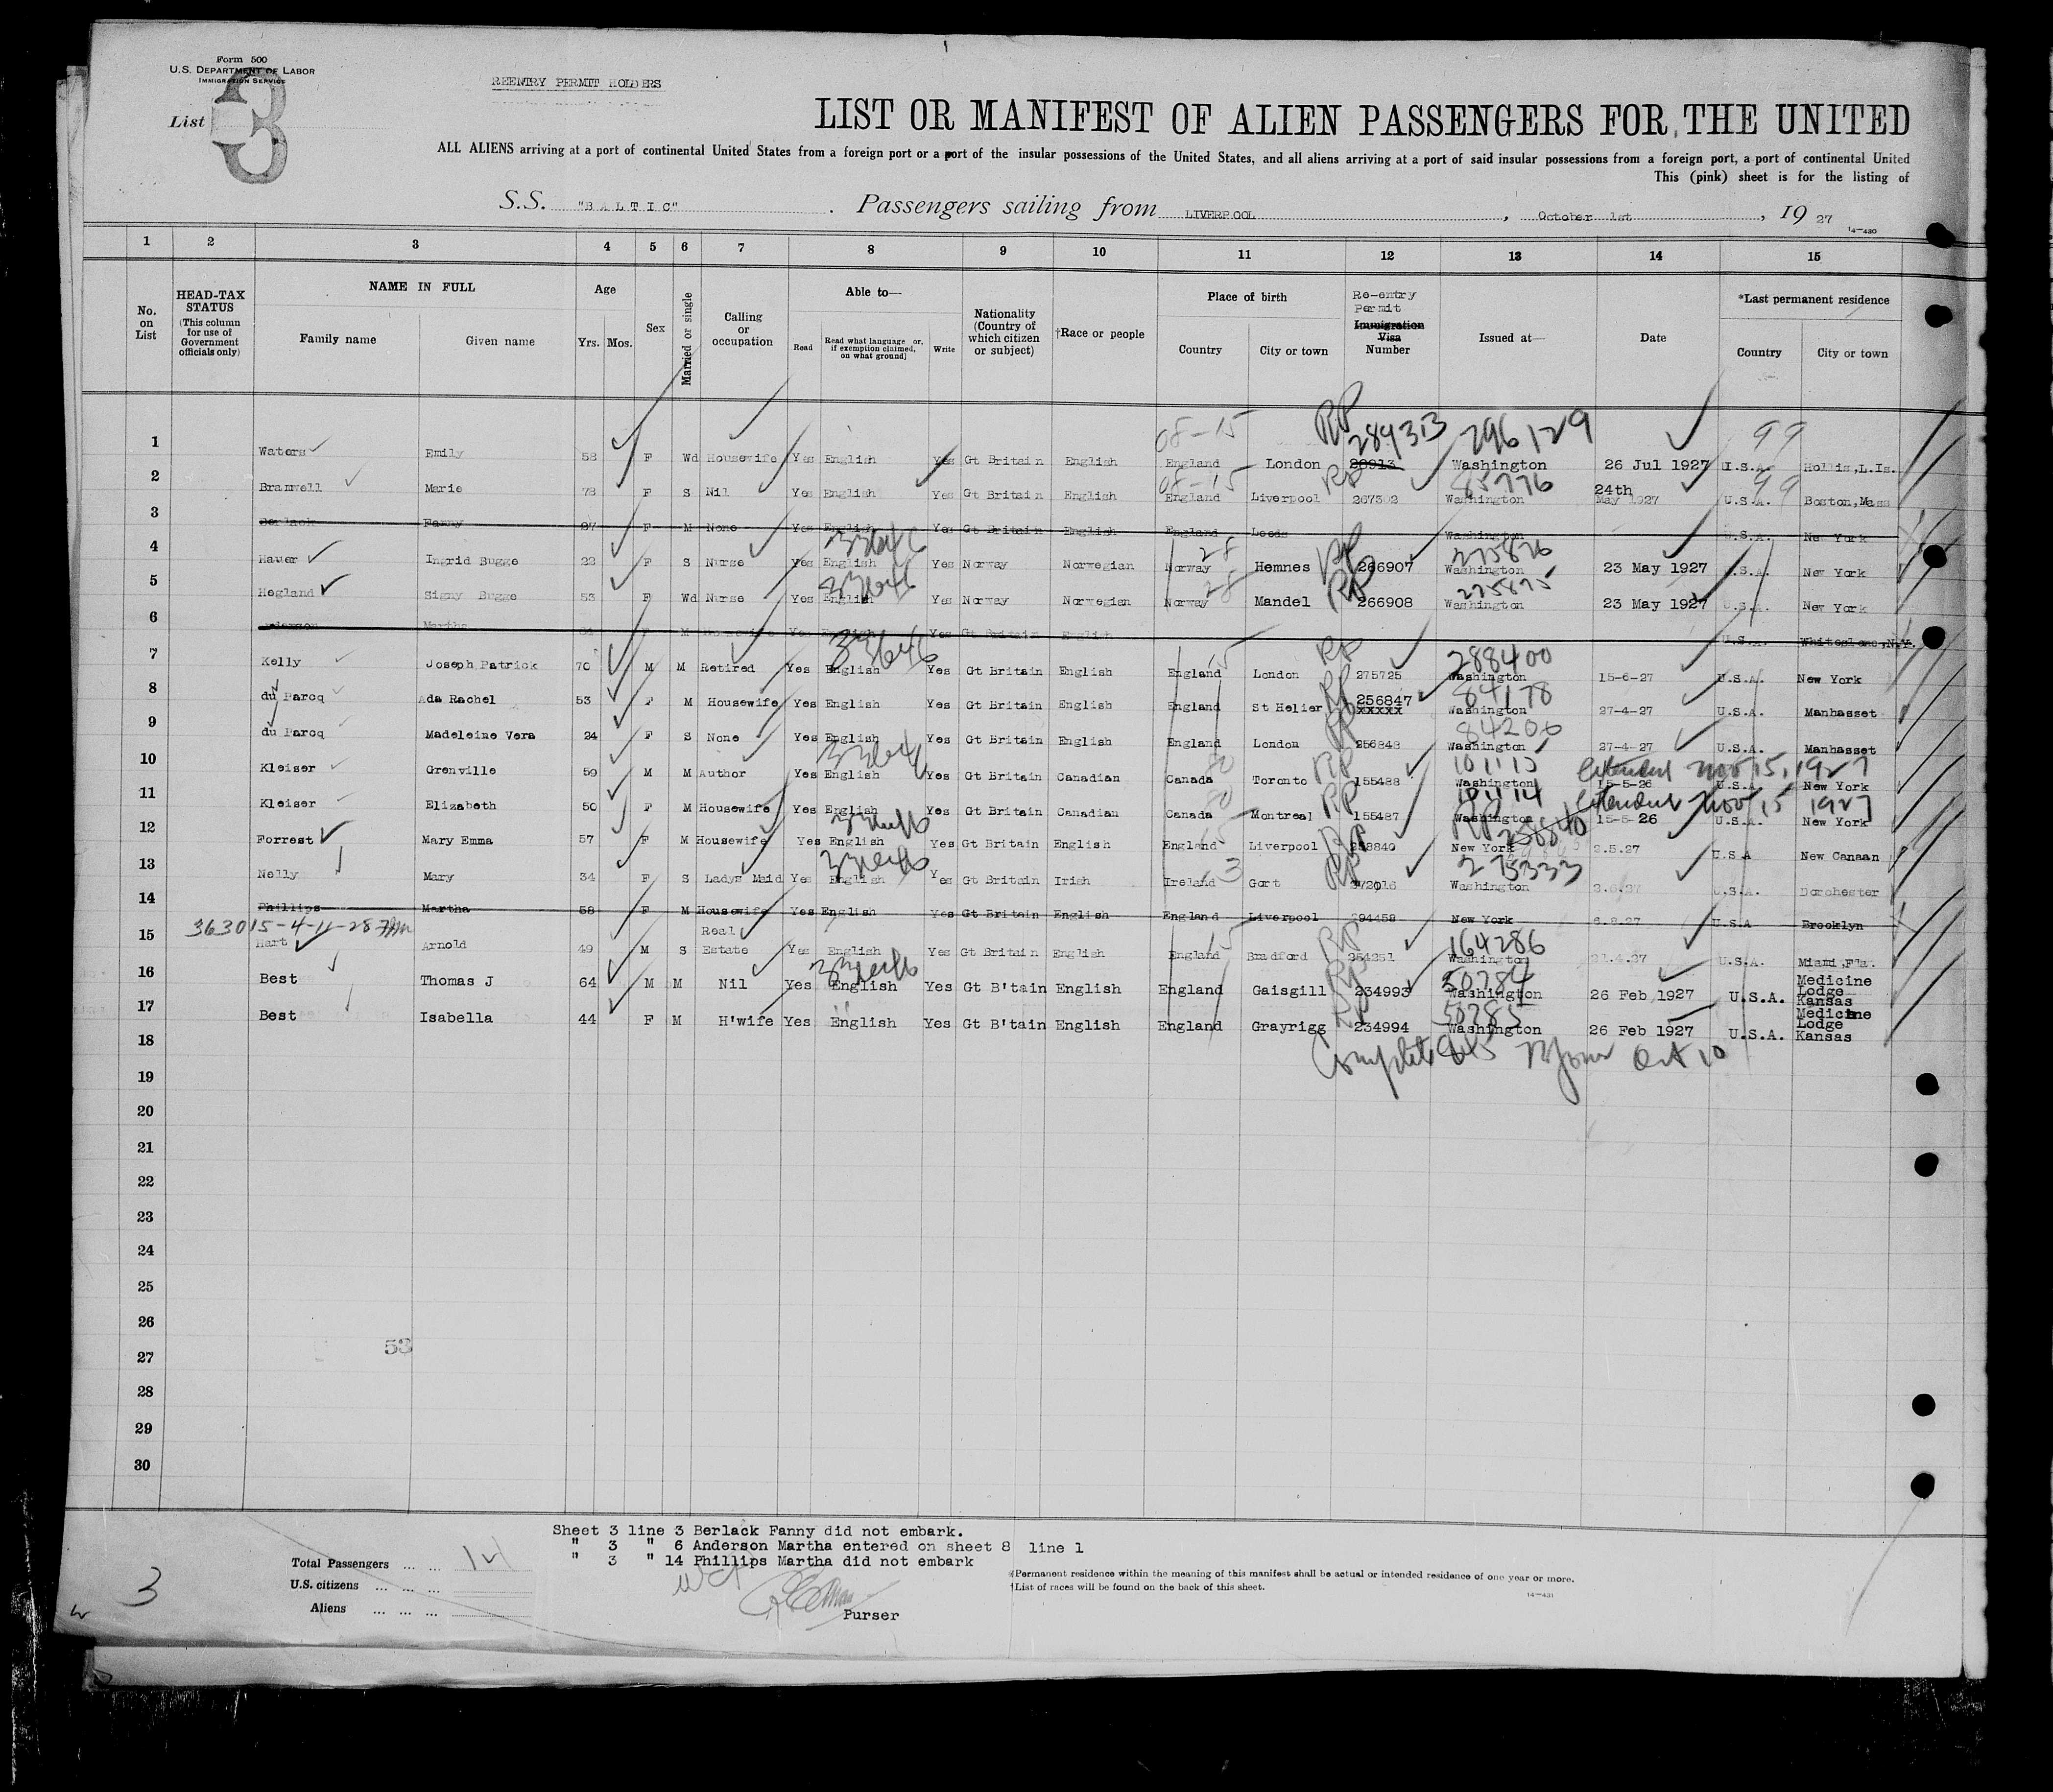 Form 500
U.S. DEPARTMENT OF LABOR
IMMIGRATION SERVICE
REENTRY PERMIT HOLDERS
List 3
LIST OR MANIFEST OF ALIEN PASSENGERS FOR THE UNITED
ALL ALIENS arriving at a port of continental United States from a foreign port or a port of the insular possessions of the United States, and all aliens arriving at a port of said insular possessions from a foreign port, a port of continental United
This (pink) sheet is for the listing of
S.S. "BALTIC" . Passengers sailing from LIVERPOOL , October 1st , 19 27
14-430
1 2 3 4 5 6 7 8 9 10 11 12 13 14 15
No. on List
HEAD-TAX STATUS (This column for use of Government officials only)
NAME IN FULL Family name Given name
Age Yrs. Mos.
Sex
Married or single
Calling or occupation
Able to— Read Read what language or, if exemption claimed, on what ground] Write
Nationality (Country of which citizen or subject)
†Race or people
Place of birth Country City or town
Re-entry Permit Immigration Visa Number
Issued at—
Date
*Last permanent residence Country City or town
08-15 RP 289313 296129 99
1 Waters Emily 58 F Wd Housewife Yes English Yes Gt Britain English England London 28913 Washington 26 Jul 1927 U.S.A. Hollis,L.Is.
08-15 RP 85776 24th 99
2 Bramwell Marie 78 F S Nil Yes English Yes Gt Britain English England Liverpool 267302 Washington May 1927 U.S.A. Boston,Mass
3 Berlack Fanny 27 F M None Yes English Yes Gt Britain English England Leeds Washington U.S.A. New York
33646 28 RP 275876
4 Hauer Ingrid Bugge 22 F S Nurse Yes English Yes Norway Norwegian Norway Hemnes 266907 Washington 23 May 1927 U.S.A. New York
33646 28 RP 275875
5 Hegland Signy Bugge 53 F Wd Nurse Yes English Yes Norway Norwegian Norway Mandel 266908 Washington 23 May 1927 U.S.A. New York
6 Anderson Martha F M Housewife Yes English Yes Gt Britain English U.S.A. Whiteplens,N.Y.
33646 15 RP 288400
7 Kelly Joseph Patrick 70 M M Retired Yes English Yes Gt Britain English England London 275725 Washington 15-6-27 U.S.A. New York
RP 84178
8 du Parcq Ada Rachel 53 F M Housewife Yes English Yes Gt Britain English England St Helier 256847 XXXXX Washington 27-4-27 U.S.A. Manhasset
RP 84206
9 du Parcq Madeleine Vera 24 F S None Yes English Yes Gt Britain English England London 256848 Washington 27-4-27 U.S.A. Manhasset
33646 80 RP 101113 Extended Nov 15, 1927
10 Kleiser Grenville 59 M M Author Yes English Yes Gt Britain Canadian Canada Toronto 155488 Washington 15-5-26 U.S.A. New York
80 RP 101114 Extended Nov 15 1927
11 Kleiser Elizabeth 50 F M Housewife Yes English Yes Gt Britain Canadian Canada Montreal 155487 Washington 15-5-26 U.S.A. New York
33646 15 RP 258840
12 Forrest Mary Emma 57 F M Housewife Yes English Yes Gt Britain English England Liverpool 258840 New York 2.5.27 U.S.A New Canaan
33646 13 RP 275333
13 Nelly Mary 34 F S Ladys Maid Yes English Yes Gt Britain Irish Ireland Gort 272016 Washington U.S.A. Dorchester
14 Phillips Martha 58 F M Housewife Yes English Yes Gt Britain English England Liverpool 294458 New York 6.8.27 U.S.A Brooklyn
363015-4-11-28 15 RP 164286
15 Hart Arnold 49 M S Real Estate Yes English Yes Gt Britain English England Bradford 254251 Washington 21.4.27 U.S.A. Miami,Fla.
33646 RP 50784
16 Best Thomas J 64 M M Nil Yes English Yes Gt B'tain English England Gaisgill 234993 Washington 26 Feb 1927 U.S.A. Medicine Lodge Kansas
RP 50785
17 Best Isabella 44 F M H'wife Yes English Yes Gt B'tain English England Grayrigg 234994 Washington 26 Feb 1927 U.S.A. Medicine Lodge Kansas
18 Complete 845 Oct 10
19
20
21
22
23
24
25
26
53
27
28
29
30
Sheet 3 line 3 Berlack Fanny did not embark.
" 3 " 6 Anderson Martha entered on sheet 8 line 1
" 3 " 14 Phillips Martha did not embark
Total Passengers ... ... 14
U.S. citizens ... ... ...
Aliens ... ... ...
3
Purser
*Permanent residence within the meaning of this manifest shall be actual or intended residence of one year or more.
†List of races will be found on the back of this sheet.
14-431